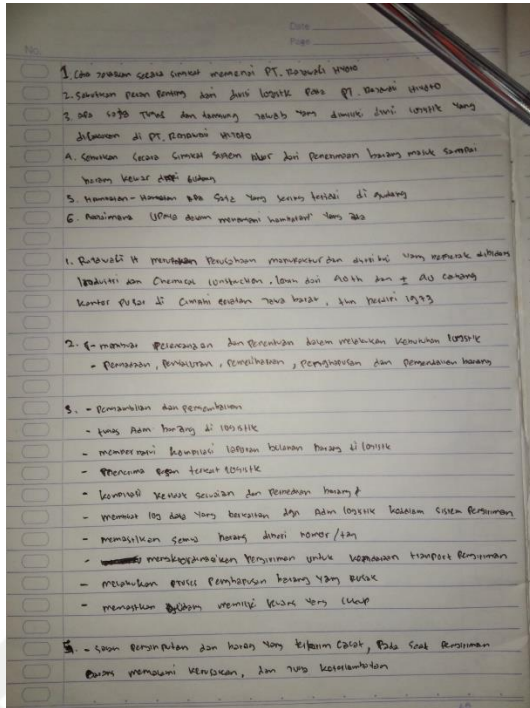 Date
Page
No.
1. Coba jelaskan secara singkat mengenai PT. Rajawali Hiyoto
2. Sebutkan peran penting dari divisi logistik pada PT. Rajawali Hiyoto
3. apa saja tugas dan tanggung jawab yang dimiliki divisi logistik yang
dilakukan di PT. Rajawali Hiyoto
4. Sebutkan secara singkat sistem alur dari penerimaan barang masuk sampai
barang keluar dari gudang
5. Hambatan-Hambatan apa saja yang sering terjadi di gudang
6. Bagaimana upaya dalam menangani hambatan yang ada
1. Rajawali H merupakan perusahaan manufaktur dan distribusi yang bergerak dibidang
industri dan Chemical Contruction, lebih dari 40 th dan ± 40 cabang
kantor pusat di Cimahi selatan Jawa barat, thn berdiri 1973
2. - membuat perencanaan dan penentuan dalam melakukan kebutuhan logistik
- Pengadaan, penyaluran, pemeliharaan, penghapusan dan pengendalian barang
3. - Pengambilan dan pengembalian
- tugas Adm barang di logistik
- kompilasi laporan bulanan barang di logistik
- menerima terkait logistik
- kompilasi dan barang
- membuat log data yang berkaitan dgn Adm logistik kedalam sistem Pengiriman
- memastikan semua barang diberi nomor/tag
- mengkoordinasikan pengiriman untuk transport Pengiriman
- melakukan proses penghapusan barang yang rusak
- memastikan gudang memiliki yang cukup
5. - Salah penginputan dan barang yang terkirim cacat, Pada saat Pengiriman
barang mengalami kerusakan, dan juga keterlambatan